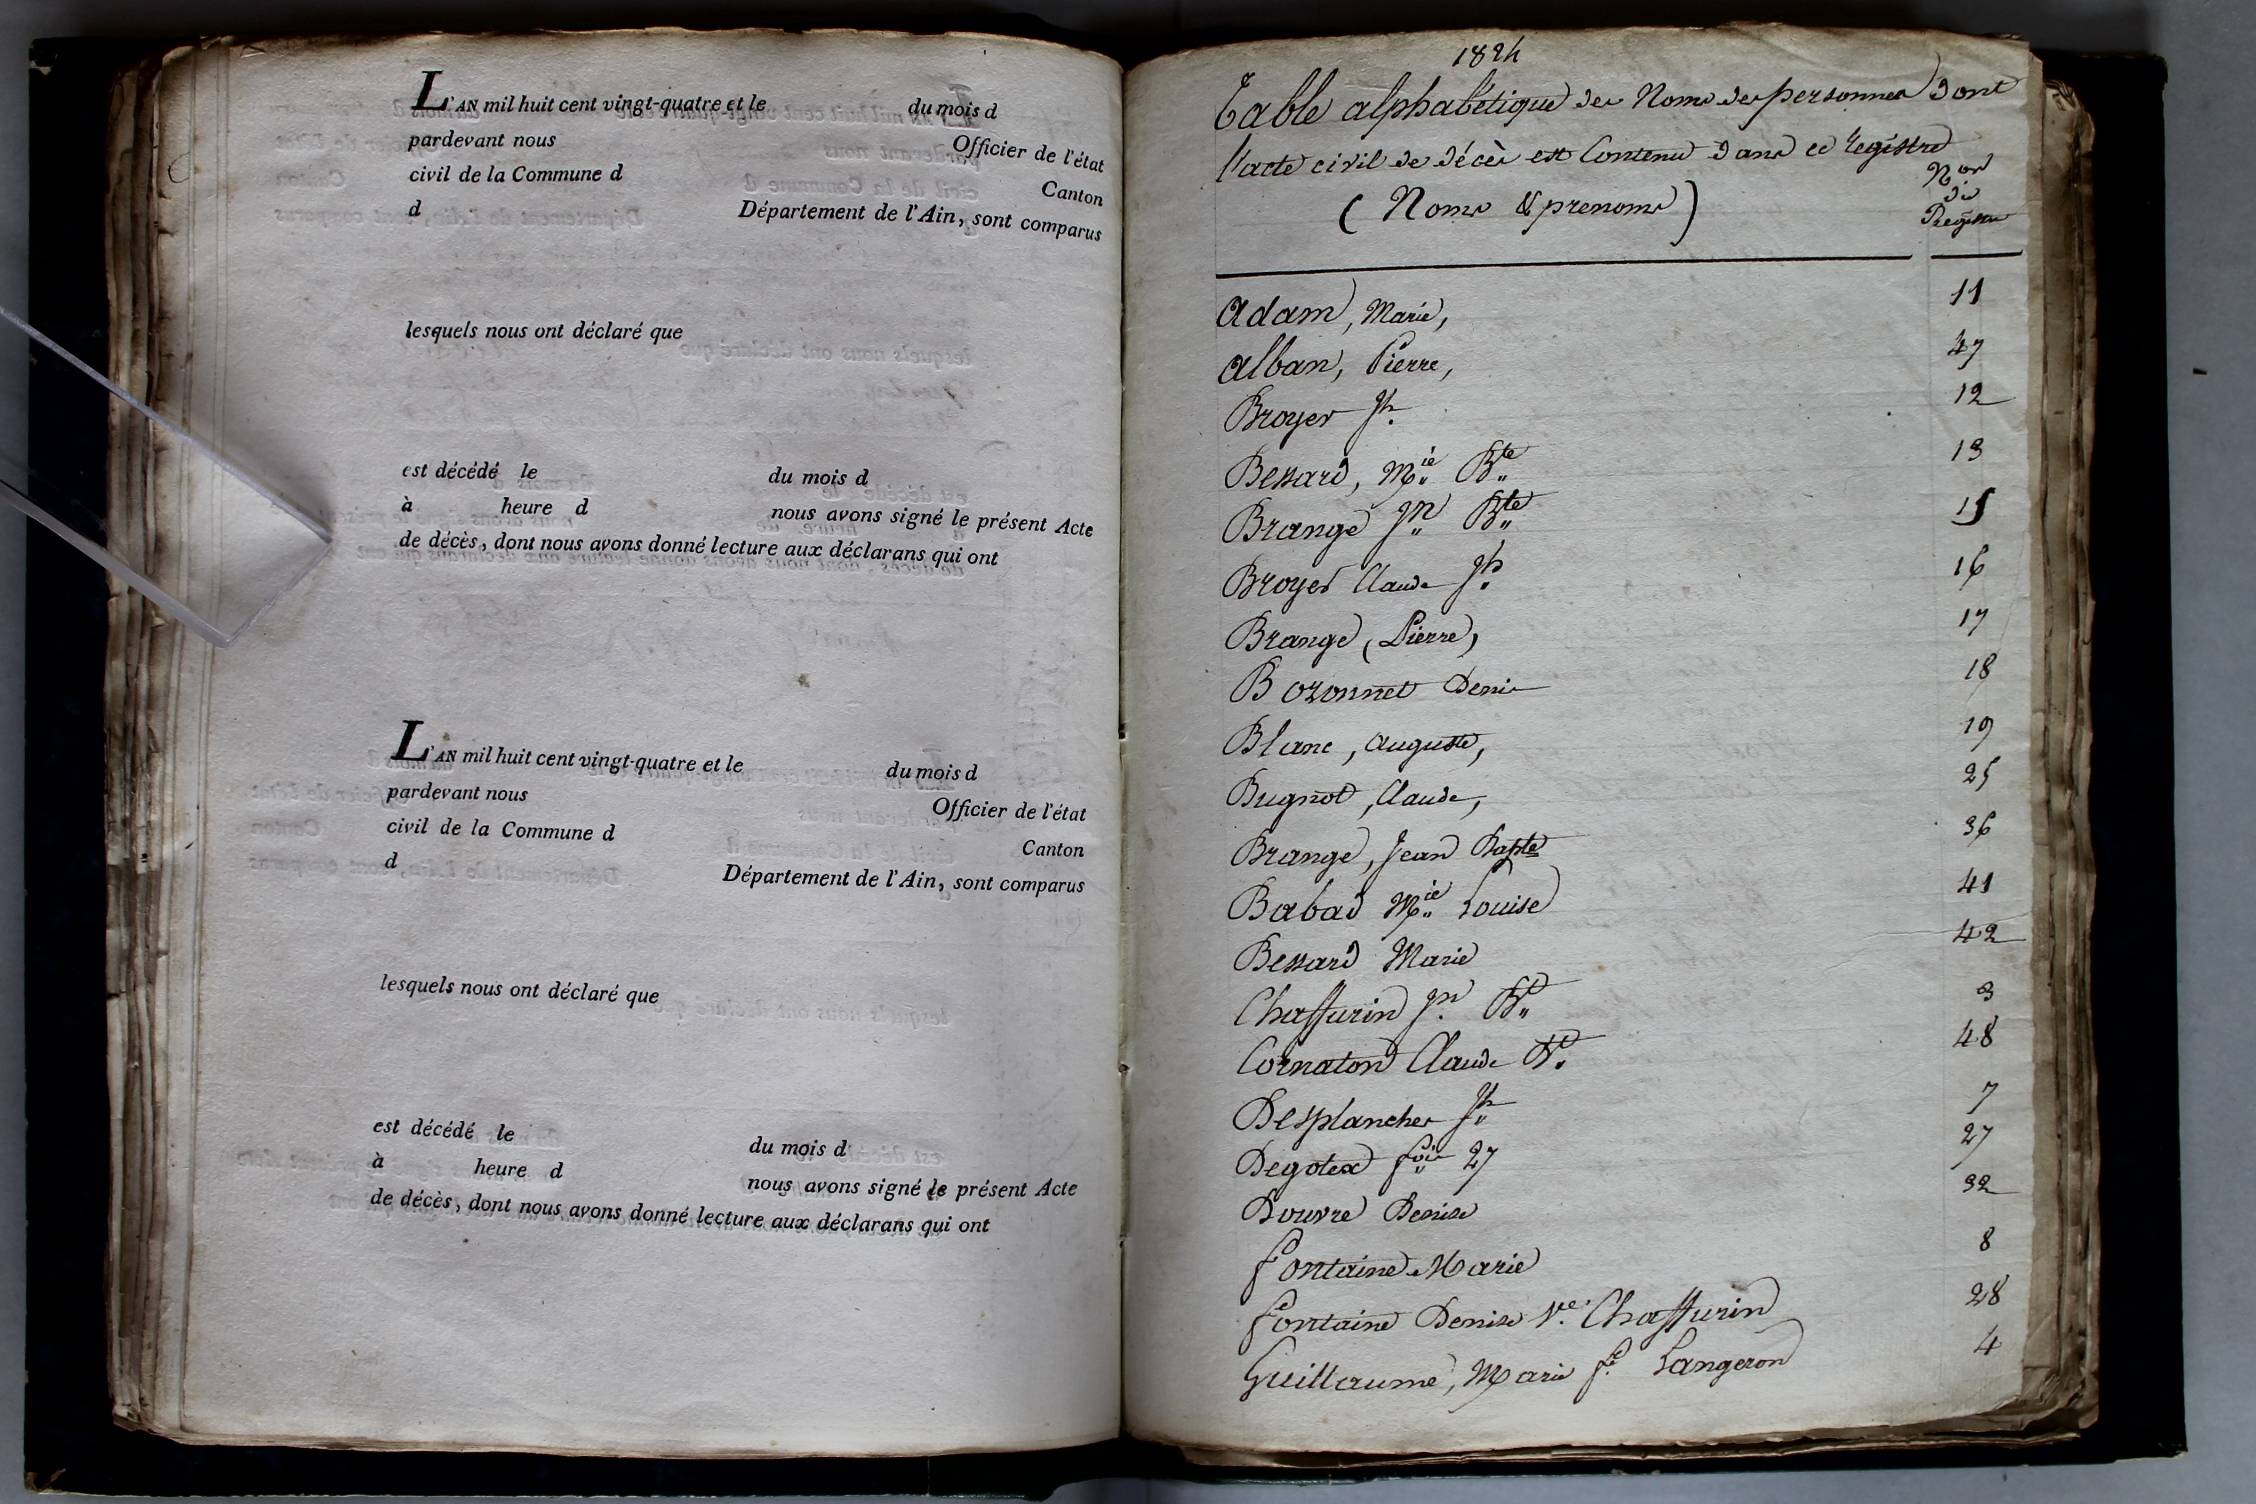 L'AN mil huit cent vingt-quatre et le du mois d
pardevant nous Officier de l'état
civil de la Commune d Canton
d Département de l'Ain, sont comparus
lesquels nous ont déclaré que
est décédé le du mois d
à heure d nous avons signé le présent Acte
de décès, dont nous avons donné lecture aux déclarans qui ont
L'AN mil huit cent vingt-quatre et le du mois d
pardevant nous Officier de l'état
civil de la Commune d Canton
d Département de l'Ain, sont comparus
lesquels nous ont déclaré que
est décédé le du mois d
à heure d nous avons signé le présent Acte
de décès, dont nous avons donné lecture aux déclarans qui ont
1824
Table alphabétique des Noms des personnes dont
l'acte civil de décès est Contenu dans ce Registre
(Noms & prenoms) Nos du Registre
Adam, Marie, 11
Alban, Pierre, 47
Broyer Jh. 12
Bessard, Mie Bte 13
Brange Jn Bte 15
Broyer Claude Jh 16
Brange, Pierre, 17
Bozonnet Denis 18
Blanc, Auguste, 19
Bugnot, Claude, 25
Brange, Jean Bapte 36
Babad Mie Louise 41
Bessard Marie 42
Chaffurin Jn Bt 3
Cornaton Claude 48
Desplanches Jh 7
Degotex fois 27 27
Douvre Denise 32
Fontaine Marie 8
Fontaine Denise Ve. Chaffurin 28
Guillaume, Marie fe Langeron 4